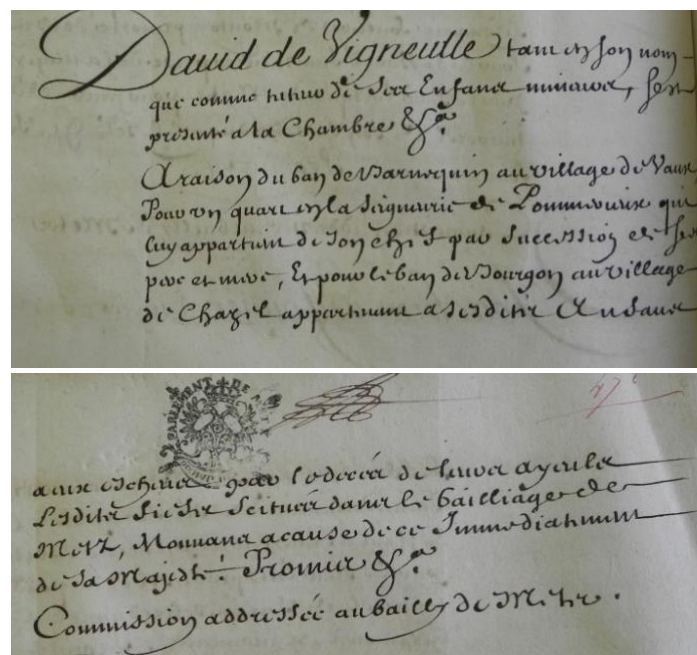 Dauid de Vigneulle tant en son nom
que comme tuteur de ses Enfans mineurs, sest
presenté a la Chambre &ca
A raison du ban de Barnequin au village de Vaux
Pour vn quart en la seigneurie de Pommerieux qui
luy appartient de son chef par succession de ses
pere et mere, Et pour le ban de Bourgon au village
de Chazel appartenant a sesdites Enfans
PARLEMENT DE
a eux escheus par le decés de leurs ayeule
Lesdits fiefs scitués dans le bailliage de
Metz, Mouvans a cause de ce Immediatement
de sa Majesté. Promis &ca
Commission addressée au bailly de Metz.